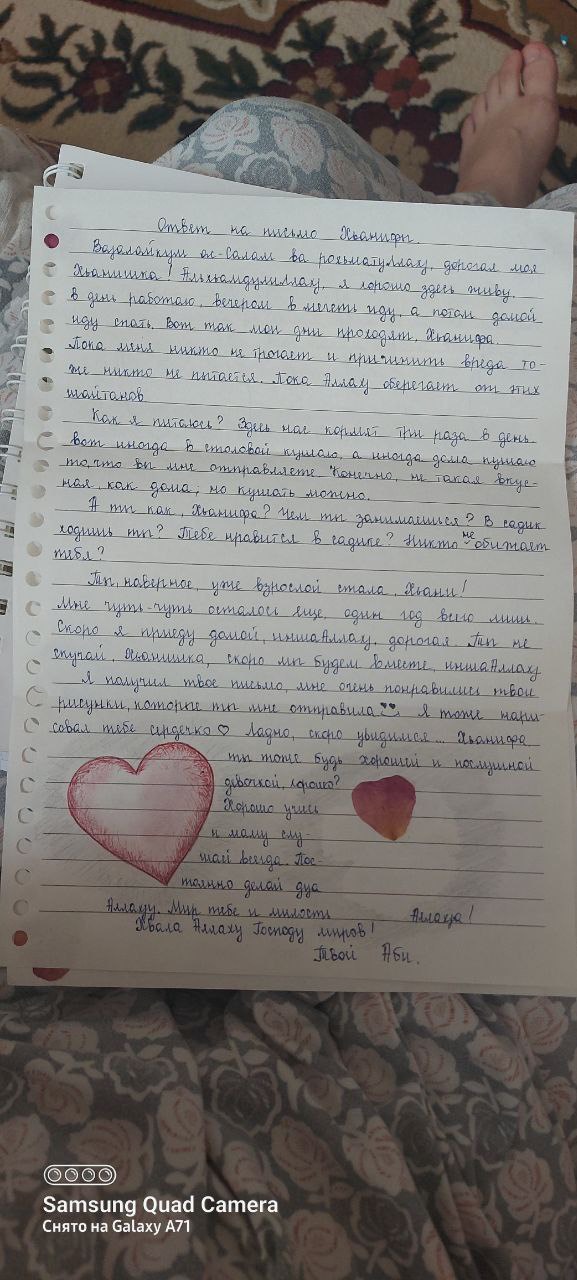 Ответ на письмо Хьанифы.
Вагалайкум ас-Салам ва рохьматуллах, дорогая моя
Хьанишка! Альхьамдулиллах, я хорошо здесь живу,
в день работаю, вечером в мечеть иду, а потом домой
иду спать. Вот так мои дни проходят, Хьанифа.
Пока меня никто не трогает и причинить вреда то-
же никто не пытается. Пока Аллах оберегает от этих
шайтанов
Как я питаюсь? Здесь нас кормят три раза в день.
вот иногда в столовой кушаю, а иногда дома кушаю
то, что вы мне отправляете. Конечно, не такая вкус-
ная, как дома, но кушать можно.
А ты как, Хьанифа? Чем ты занимаешься? В садик
ходишь ты? Тебе нравится в садике? Никто не обижает
тебя?
Ты, наверное, уже взрослой стала, Хьани!
Мне чуть-чуть осталось еще, один год всего лишь.
Скоро я приеду домой, иншаАллах, дорогая. Ты не
скучай, Хьанишка, скоро мы будем вместе, иншаАллах
Я получил твое письмо, мне очень понравились твои
рисунки, которые ты мне отправила. Я тоже нари-
совал тебе сердечко ♡ Ладно, скоро увидимся... Хьанифа
ты тоже будь хорошей и послушной
девочкой, хорошо?
Хорошо учись
и маму слу-
шай всегда. Пос-
тоянно делай дуа
Аллаху. Мир тебе и милость Аллаха!
Хвала Аллаху Господу миров!
Твой Аби.
Samsung Quad Camera
Снято на Galaxy A71